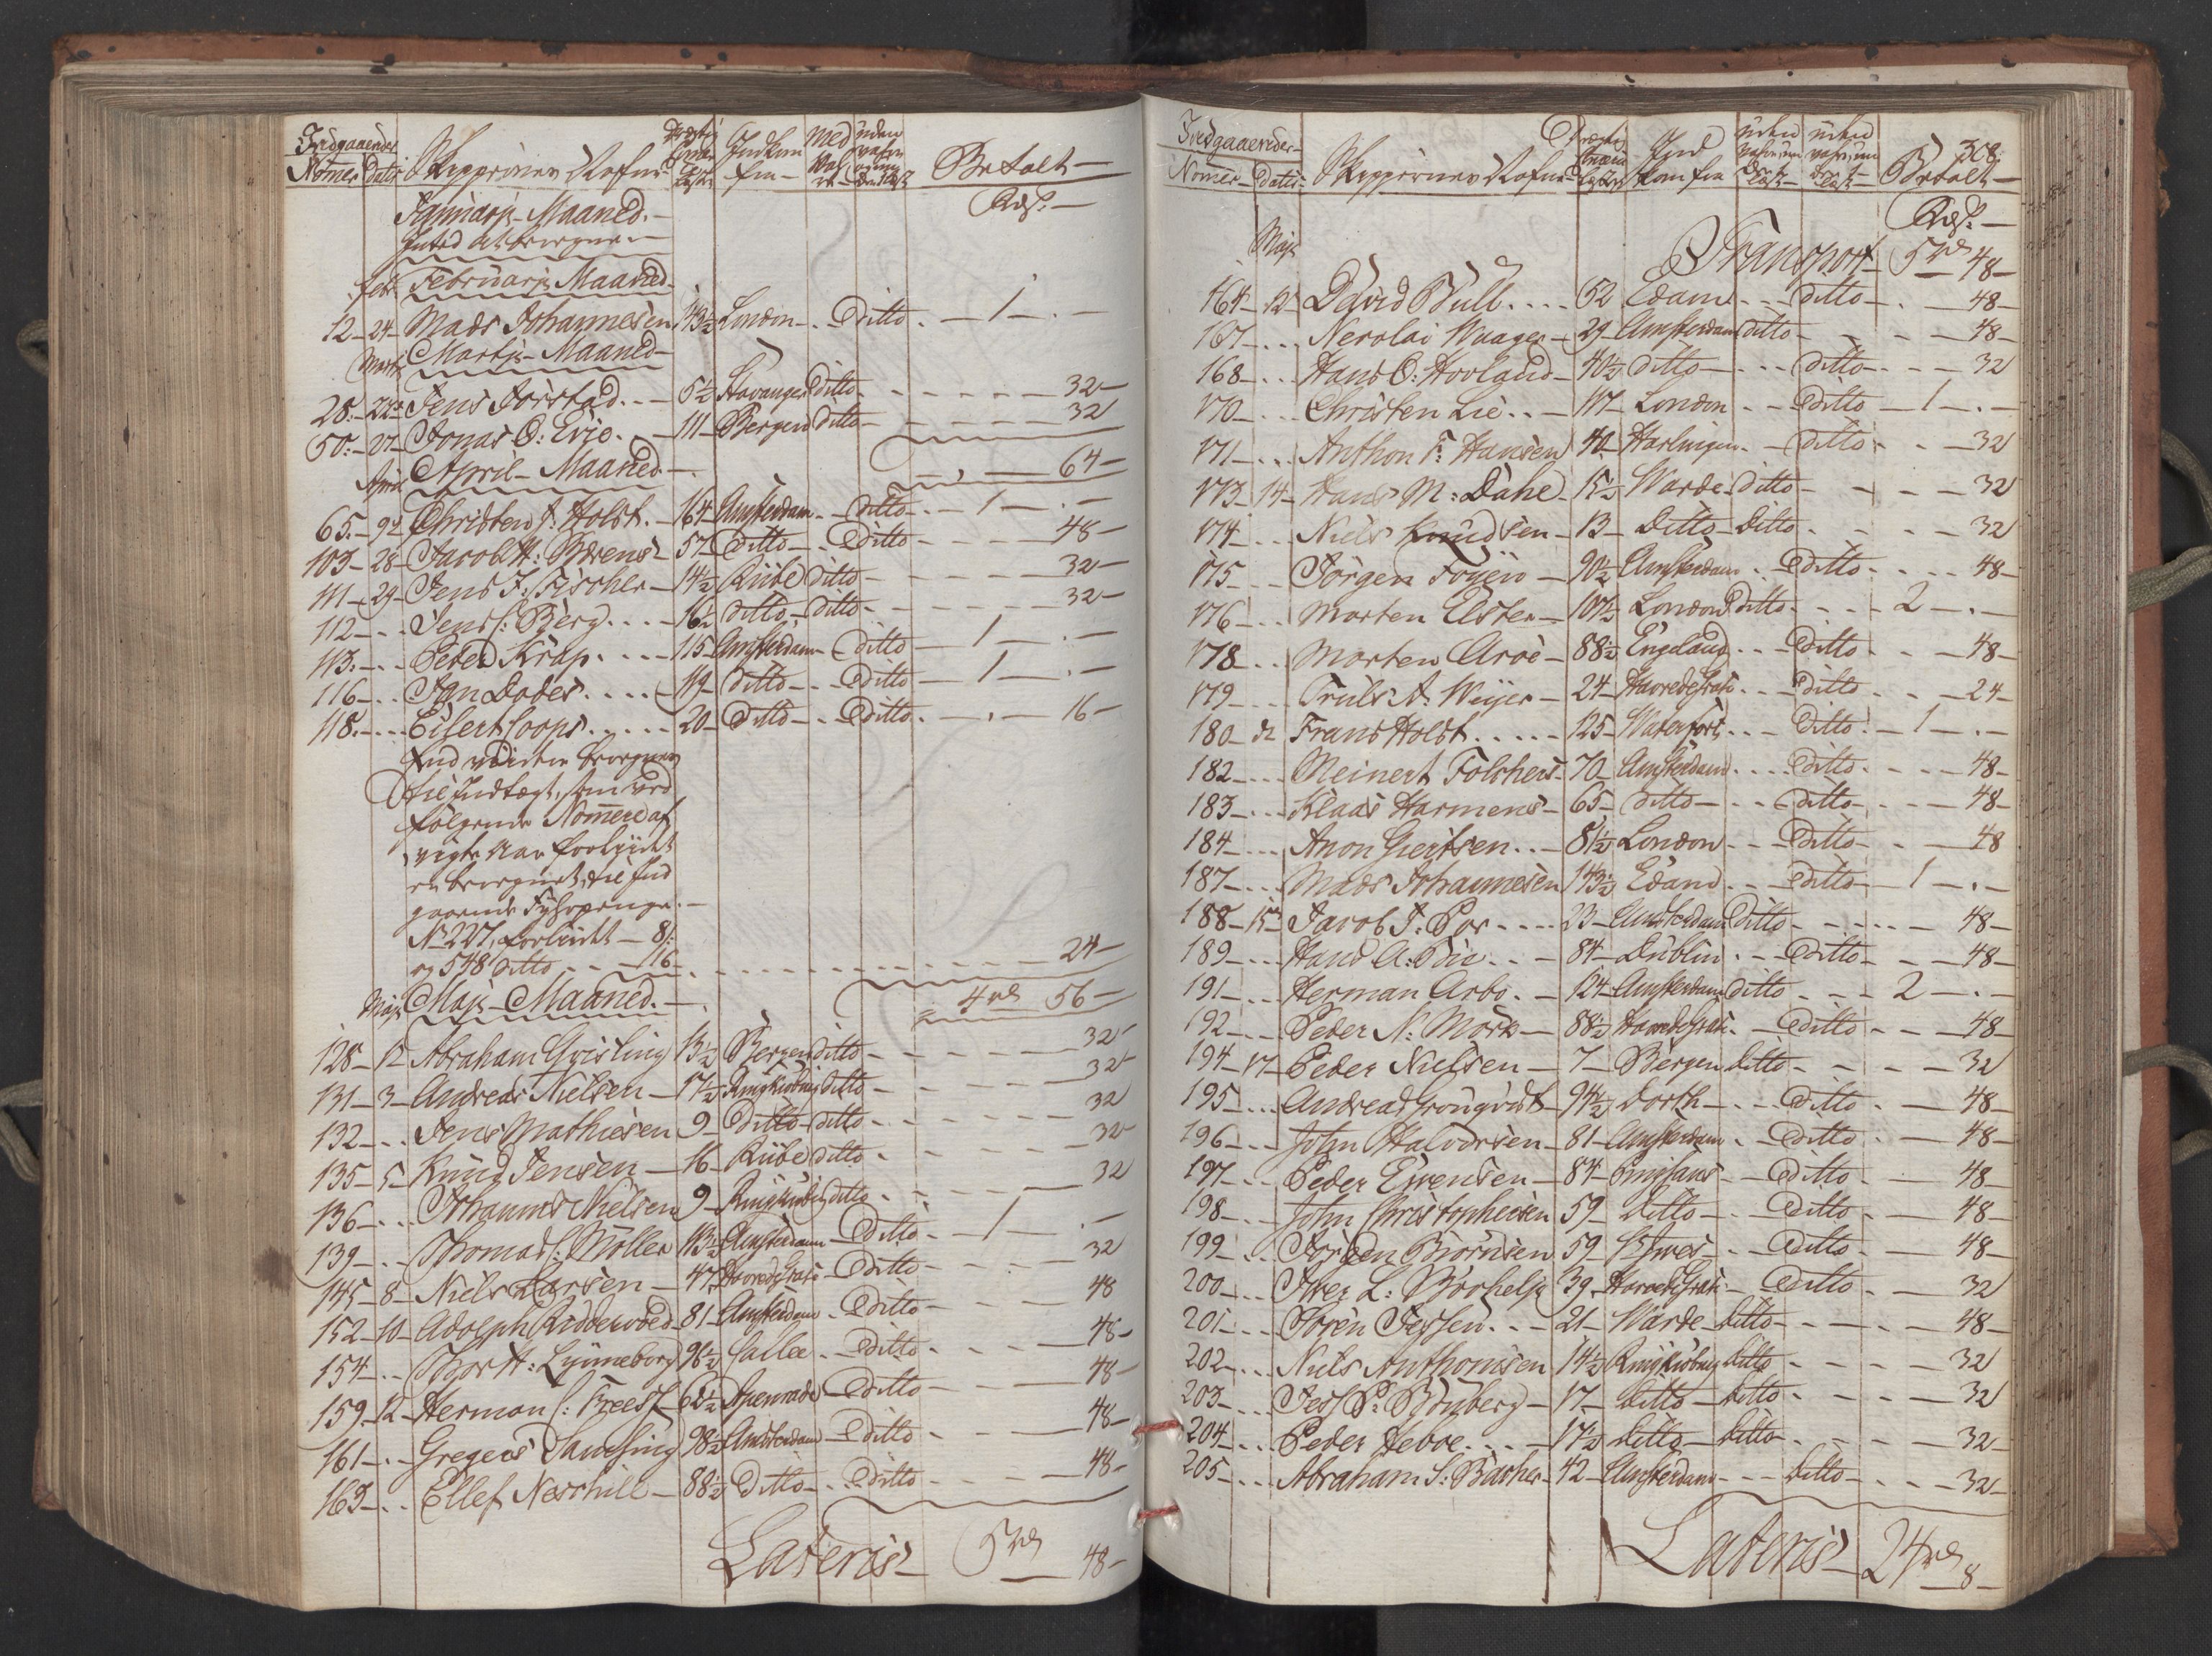 Indgaaende
Nomer Datis Skippernes Nafne Indkom fra Med uden Betalt
Rdsr.
Januarji Maaned.
Intet at beregne
febr. Februarji Maaned
12 24 Mads Johannesen 143½ London ditto 1
Marti Martji Maaned
28 22 Jens Jørstad 5½ Stavanger ditto 32
50 27 Jonas O: Evje 11 Bergen ditto 32
64
April April Maaned
65 9 Christen J: Holst 164 Amsterdam ditto 1
103 28 Jacob H: Berens 57 ditto ditto 48
111 29 Jens J: Fischer 14½ Riibe ditto 32
112 Jens C: Berg 16½ ditto ditto 32
113 Peter Krap 115 Amsterdam ditto 1
116 Jan Dodes 119 ditto ditto 1
118 Eilert Coops 20 ditto ditto 16
til Indtægt, som ved
følgende Nomere af
er beregnet, til Ind
gaaende Fyhrpenge
No 227, forliidt 8
og 548 ditto 16
24
Maji Maji Maaned 4rd 56
128 2 Abraham Grisling 13½ Bergen ditto 32
131 3 Andreas Nielsen 17½ Ringkiøbing ditto 32
132 Jens Mathiesen 9 ditto ditto 32
135 5 Knud Jensen 16 Riibe ditto 32
136 Johannes Nielsen 9 Ringkiøbing ditto 32
139 Thomas C: Møller 113½ Amsterdam ditto 1
145 8 Niels Larsen 47 Havre de Grace ditto 32
152 10 Adolph Ridderwold 81 Amsterdam ditto 48
154 Thor H: Lynneborg 96½ Callee ditto 48
159 12 Herman C: Freese 62½ Apenrade ditto 48
161 Gregers Langfing 98½ Amsterdam ditto 48
163 Ellef Neerhill 88½ ditto ditto 48
Lateris 5rd 48
308
Indgaaende
Nomer Datis Skippernes Nafne Ind kom fra uden uden Betalt
Rdsr.
Maji Transport 5rd 48
164 12 David Bull 62 Edam ditto 48
167 Nicolai Waager 29 Amsterdam ditto 48
168 Hans O: Hovland 40½ ditto ditto 32
170 Christen Lie 117 London ditto 1
171 Anthon F: Hansen 40 Harlingen ditto 32
173 14 Hans M: Dahl 15½ Warde ditto 32
174 Niels Knudsen 13 ditto ditto 32
175 Jørgen Foyen 90½ Amsterdam ditto 48
176 Morten Elster 107½ London ditto 2
178 Morten Aroe 88½ Engeland ditto 48
179 Truls A: Weyer 24 Havre de Grace ditto 24
180 d Frans Holst 125 Waterfort ditto 1
182 Meinert Folchers 70 Amsterdam ditto 48
183 Klaas Harmens 65 ditto ditto 48
184 Anon Giertsen 81½ London ditto 48
187 Mads Johannesen 143½ Edam ditto 1
188 15 Jacob J: Por 23 Amsterdam ditto 48
189 Hans A: Bie 84 Dublin ditto 48
191 Herman Arbo 124 Amsterdam ditto 2
192 Peder N: Mørk 88½ Havre de Grace ditto 48
194 17 Peder Nielsen 7 Bergen ditto 32
195 Andreas Grønqvist 94½ Dorth ditto 48
196 John Halvorsen 81 Amsterdam ditto 48
197 Peder Evensen 84 ditto 48
198 John Christophersen 59 ditto ditto 48
199 Jørgen Biørnsen 59 ditto 48
200 Iver L: Børhelp 39 Havre de Grace ditto 32
201 Søren Jessen 21 Warde ditto 48
202 Niels Anthonisen 14½ Ringkiøbing ditto 32
203 Jess P: 17 ditto ditto 32
204 Peder Heboe 17½ ditto ditto 32
205 Abraham S: Bacher 42 Amsterdam ditto 32
Lateris 24rd 8